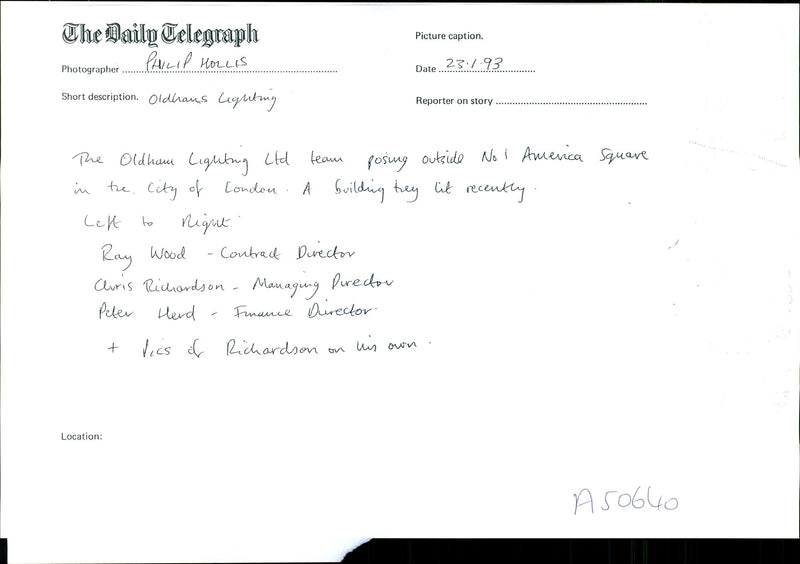 The Daily Telegraph
Picture caption.
Photographer PHILIP HOLLIS
Date 23.1.93
Short description. Oldhams Lighting
Reporter on story
The Oldham Lighting Ltd team posing outside No 1 America Square
in the City of London. A building they lit recently.
Left to Right
Ray Wood - Contract Director
Chris Richardson - Managing Director
Peter Herd - Finance Director.
+ Pics of Richardson on his own.
Location:
A50640